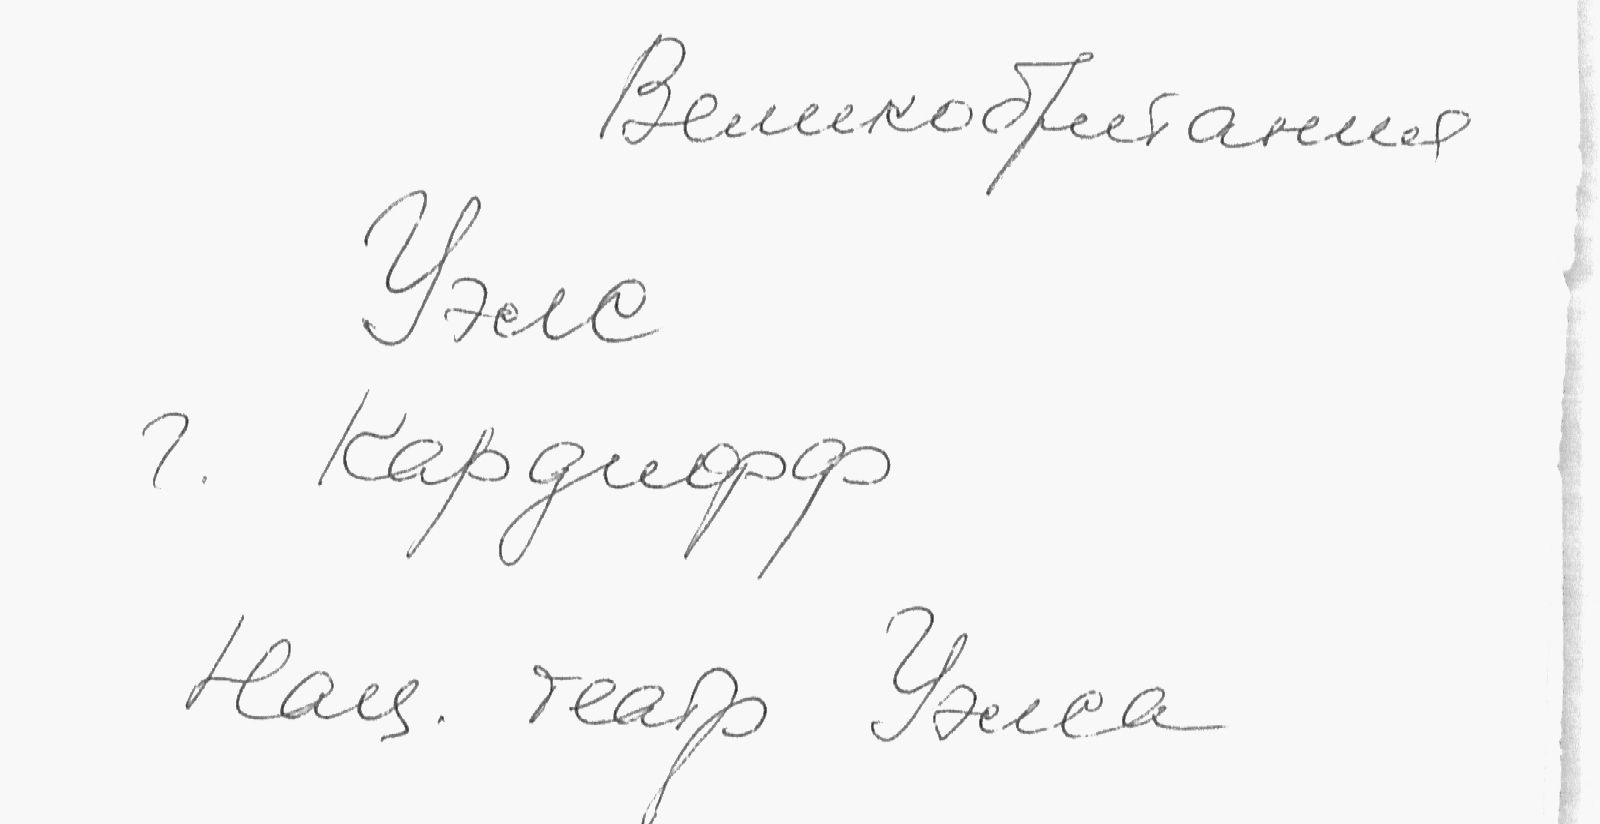 Великобритания
Уэлс
г. Кардифф
Нац. театр Уэлса